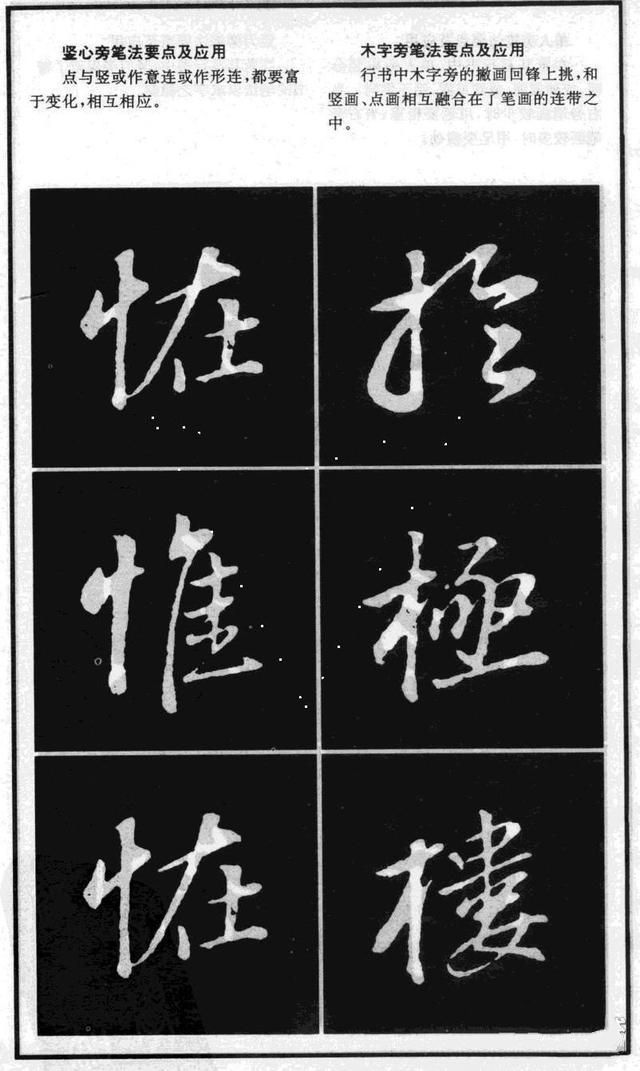 竖心旁笔法要点及应用
点与竖或作意连或作形连,都要富
于变化,相互相应。
木字旁笔法要点及应用
行书中木字旁的撇画回锋上挑,和
竖画、点画相互融合在了笔画的连带之
中。
恠
於
惟
極
恠
樓